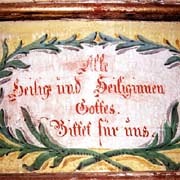 Alle
Heilige und Heiliginnen
Gottes.
Bittet für uns.